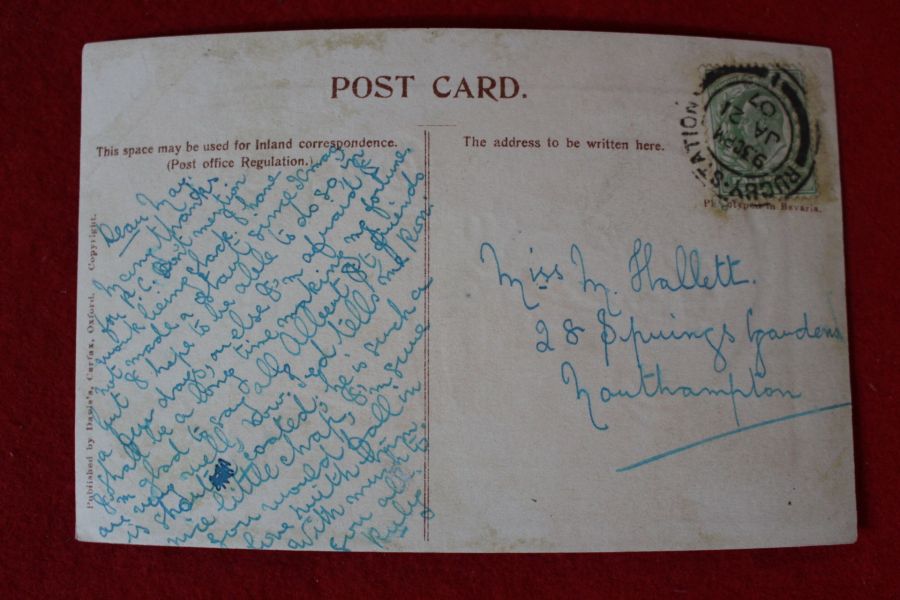 POST CARD.
This space may be used for Inland correspondence.
(Post office Regulation.)
The address to be written here.
RUGBY·STATION
9.30PM
JA 21
07
Phototyped in Bavaria.
Published by Davis's, Carfax, Oxford. Copyright.
Dear May
Many thanks
for P.C. Don't mention
work being slack. I have
not made a start since Xmas
but I hope to be able to do so in
a few days, or else I'm afraid I
shall be a long time making my fortune.
I'm glad to say all Albert St friends
are very well. Your Syd tells me Ron.
is short coated. He is such a
nice little chap. I'm sure
you would
love with
With much
you all
Miss M. Hallett.
28 Spring Gardens
Northampton